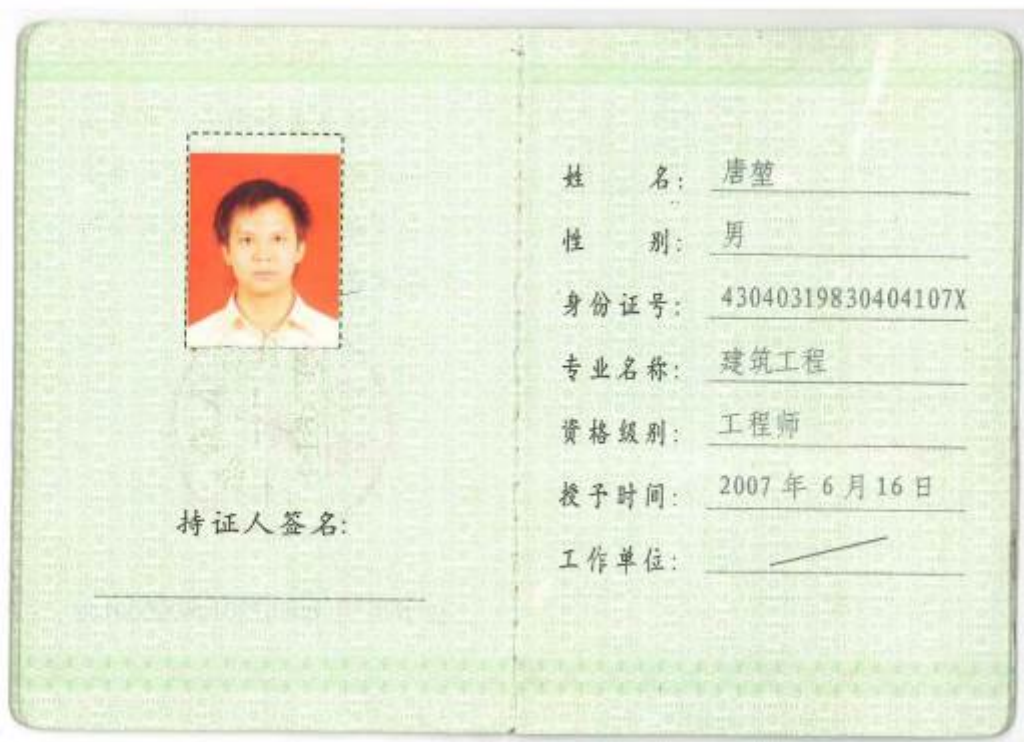 持证人签名:
姓名: 唐堃
性别: 男
身份证号: 43040319830404107X
专业名称: 建筑工程
资格级别: 工程师
授予时间: 2007 年 6 月 16 日
工作单位: